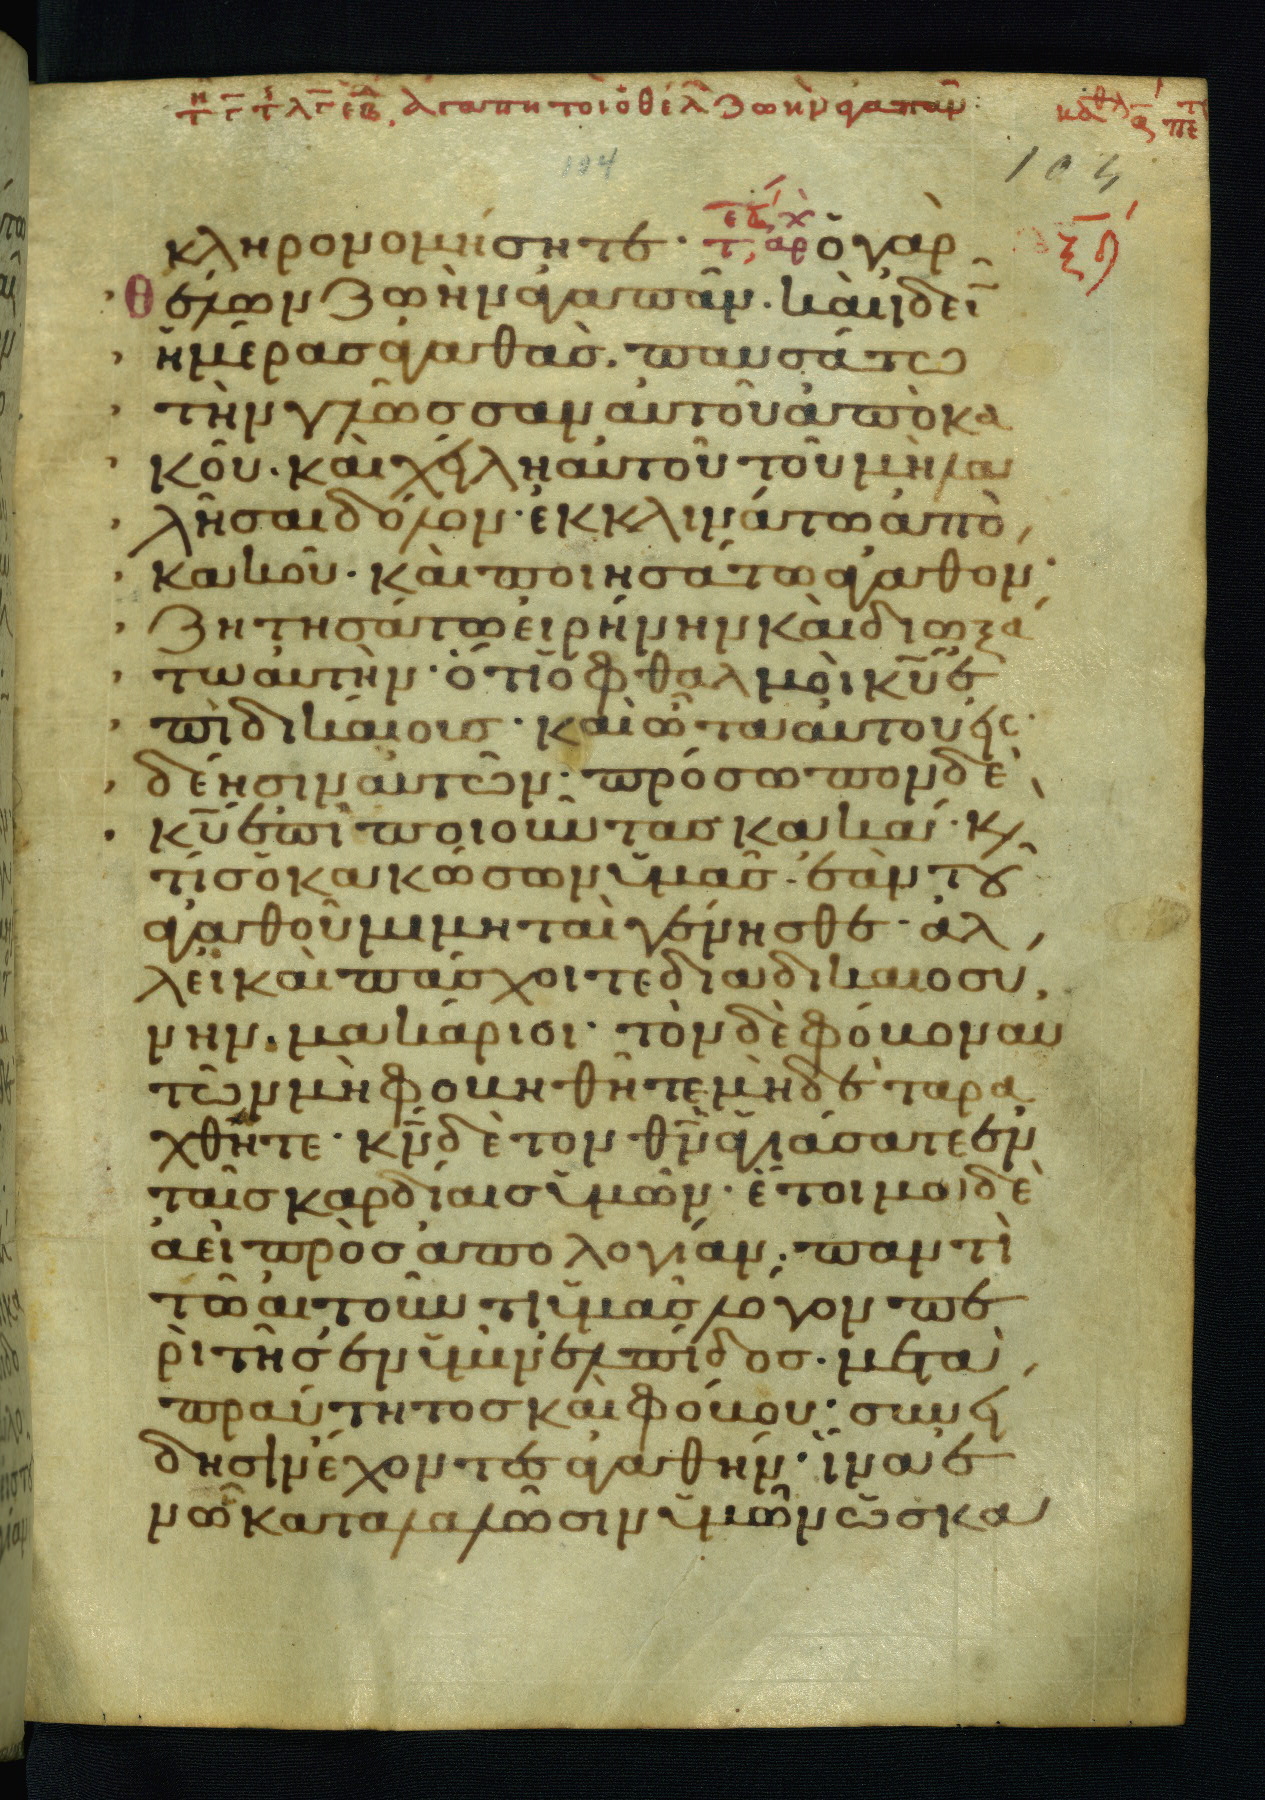 ἀγαπητοὶ ὁ θέλων ζωὴν ἀγαπᾶν
104
104
κληρονομήσητε· ὁ γὰρ
θέλων ζωὴν ἀγαπᾶν. καὶ ἰδεῖ
ἡμέρας ἀγαθάς. παυσάτω
τὴν γλῶσσαν αὐτοῦ ἀπὸ κα
κοῦ. καὶ χείλη αὐτοῦ τοῦ μὴ λα
λῆσαι δόλον· ἐκκλινάτω ἀπὸ
κακοῦ· καὶ ποιησάτω ἀγαθον·
ζητησάτω εἰρήνην καὶ διωξά
τω αὐτὴν· ὅτι ὀφθαλμοὶ κ̅υ̅ ἐ
πὶ δικαίους· καὶ ὦτα αὐτοῦ εἰς
δέησιν αὐτῶν· πρόσωπον δὲ
κ̅υ̅ ἐπὶ ποιοῦντας κακά· κ
τίς ὁ κακώσων ὑμᾶς· ἐὰν τοῦ
ἀγαθοῦ μιμηταὶ γένησθε· ἀλ
λ εἰ καὶ πάσχοιτε διὰ δικαιοσύ
νην. μακάριοι· τὸν δὲ φόβον αυ
τῶν μὴ φοβηθῆτε μὴδὲ ταρα
χθῆτε· κ̅ν̅ δὲ τον θ̅ν̅ ἁγιάσατε ἐν
ταῖς καρδίαις ὑμῶν· ἕτοιμοι δὲ
ἀεὶ πρὸς ἀπολογίαν· παντὶ
τῶ αἰτοῦντι ὑμᾶς λόγον πε
ρὶ τῆς ἐν ὑμῖν ἐλπίδος· μετὰ
πραΰτητος καὶ φόβου· συνεί
δησιν ἔχοντες ἀγαθήν· ἵνα ἐ
ν ὧ καταλαλῶσιν ὑμῶν ὡς κα